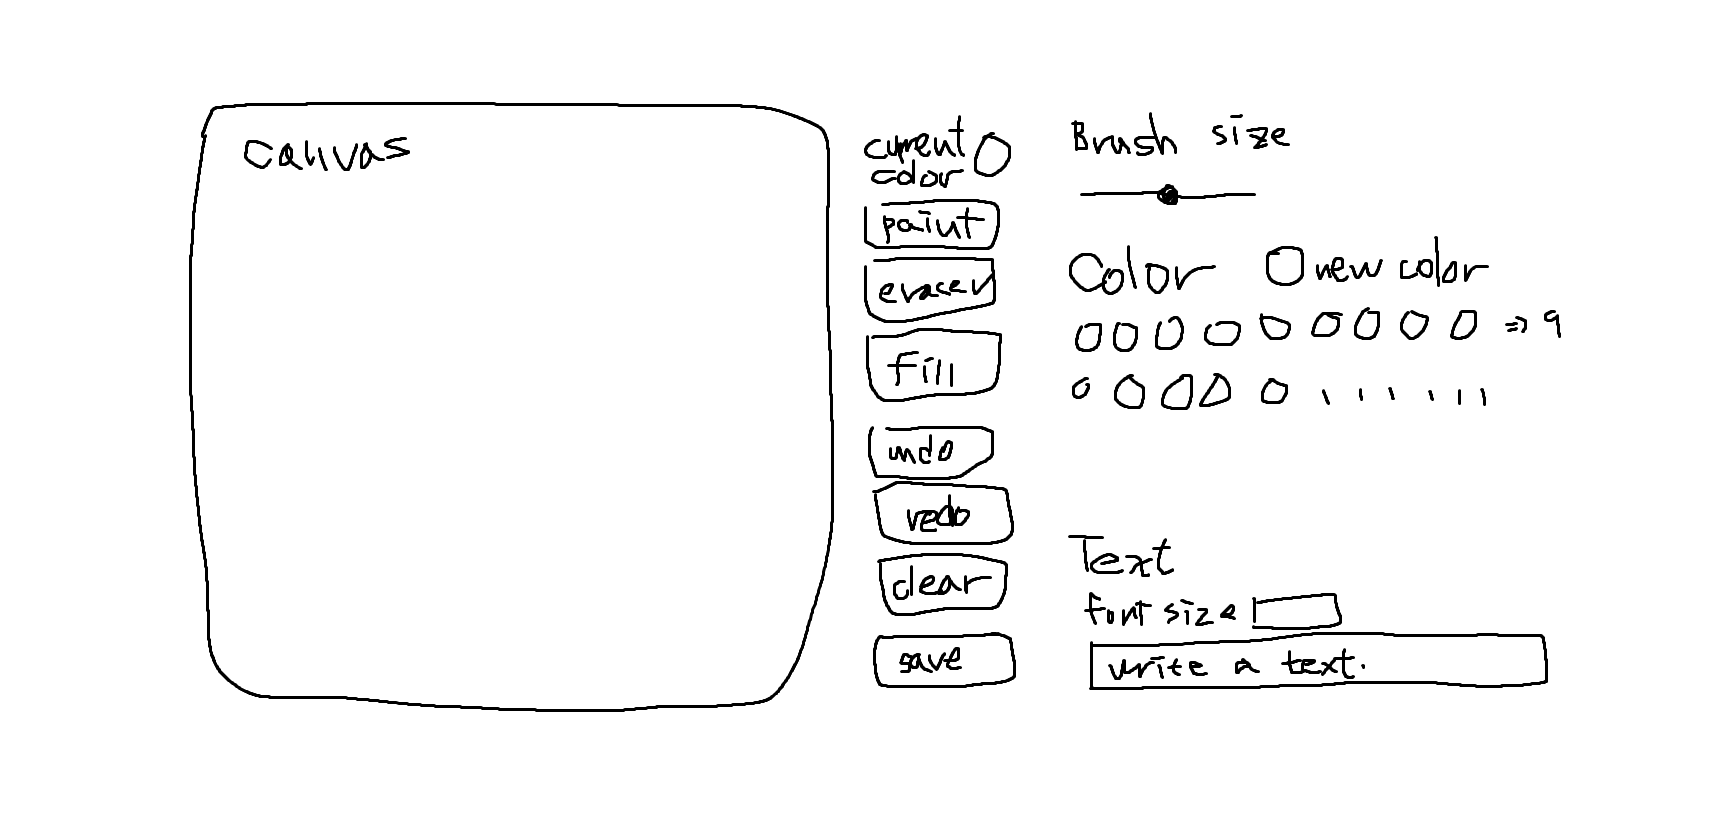 canvas
current
color
paint
eracer
fill
undo
redo
clear
save
Brush size
Color new color
=> 9
Text
font size
write a text.